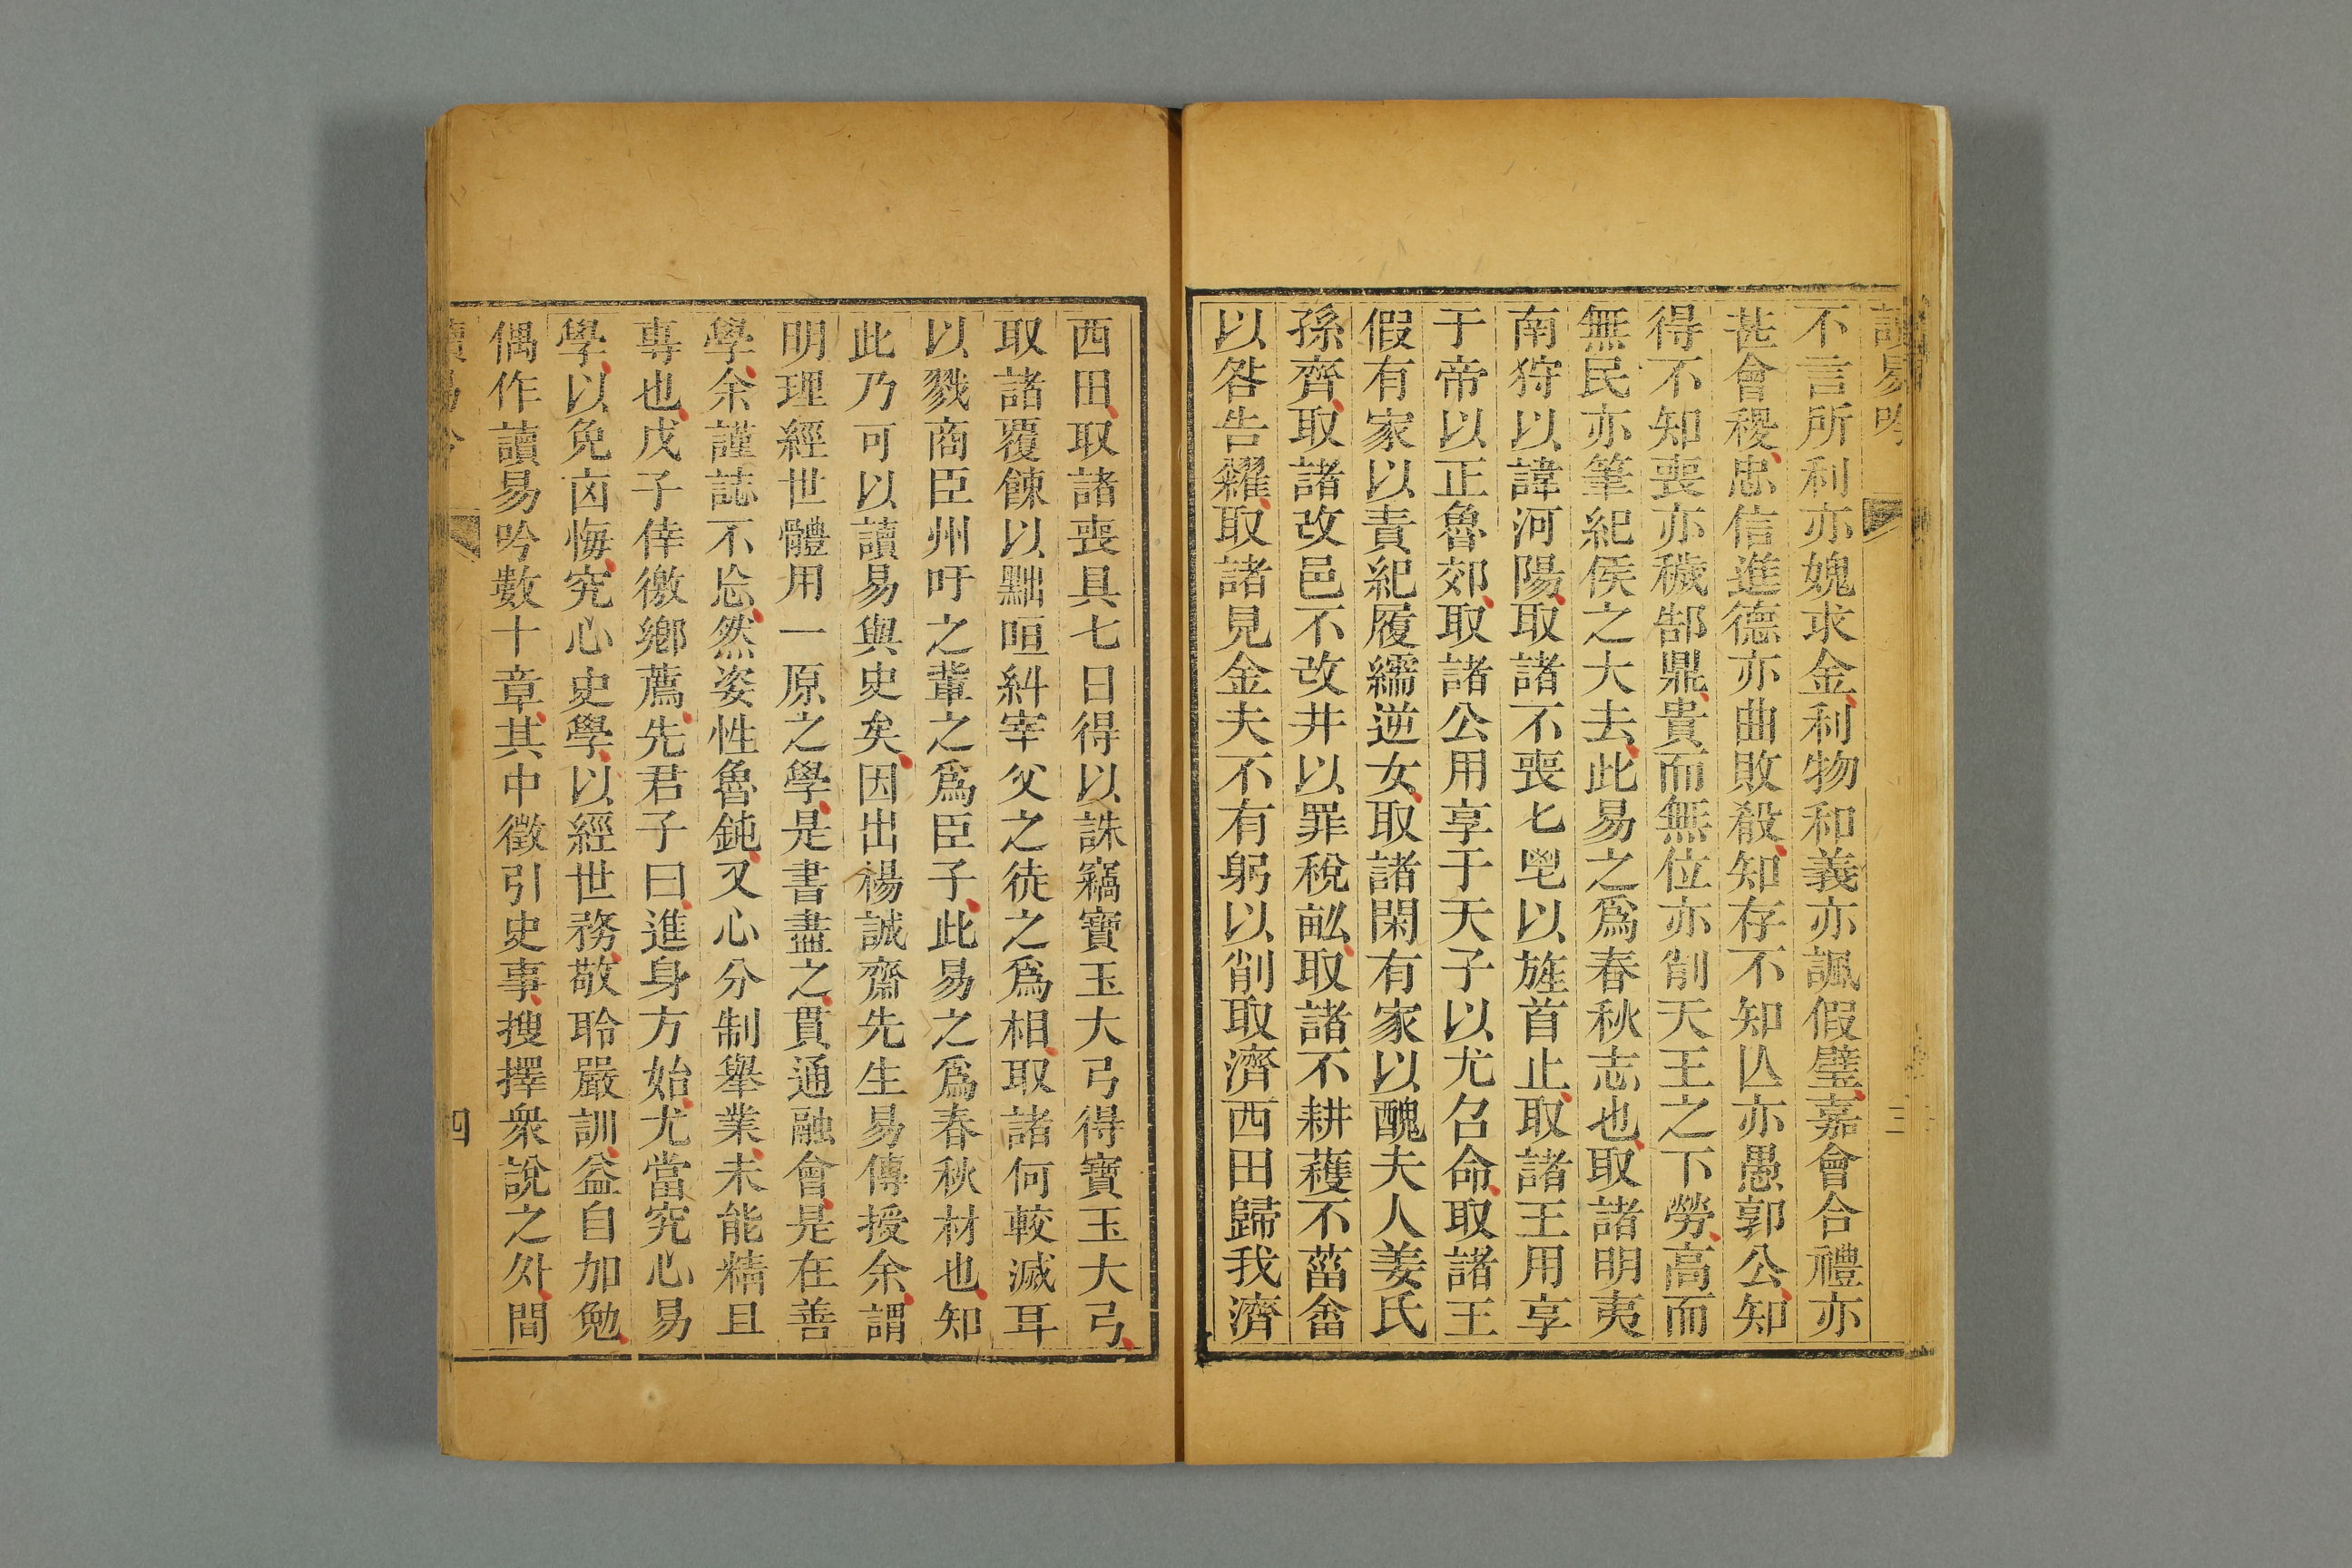 讀易吟
三
不言所利亦媿求金利物和義亦諷假璧嘉會合禮亦
甚會稷忠信進德亦曲敗殽知存不知亾亦愚郭公知
得不知喪亦穢郜鼎貴而無位亦削天王之下勞高而
無民亦筆紀侯之大去此易之爲春秋志也取諸明夷
南狩以諱河陽取諸不喪匕鬯以旌首止取諸王用享
于帝以正魯郊取諸公用享于天子以尤召命取諸王
假有家以責紀履繻逆女取諸閑有家以醜夫人姜氏
孫齊取諸改邑不改井以罪稅畝取諸不耕穫不菑畬
以咎告糴取諸見金夫不有躬以削取濟西田歸我濟
西田取諸喪具七日得以誅竊寶玉大弓得寶玉大弓
取諸覆餗以黜咺糾宰父之徒之爲相取諸何較滅耳
以戮商臣州吁之輩之爲臣子此易之爲春秋材也知
此乃可以讀易與史矣因出楊誠齋先生易傳授余謂
明理經世體用一原之學是書盡之貫通融會是在善
學余謹誌不忘然姿性魯鈍又心分制舉業未能精且
專也戊子倖徼鄉薦先君子曰進身方始尤當究心易
學以免凶悔究心史學以經世務敬聆嚴訓益自加勉
偶作讀易吟數十章其中徵引史事搜擇衆說之外間
讀易吟
四